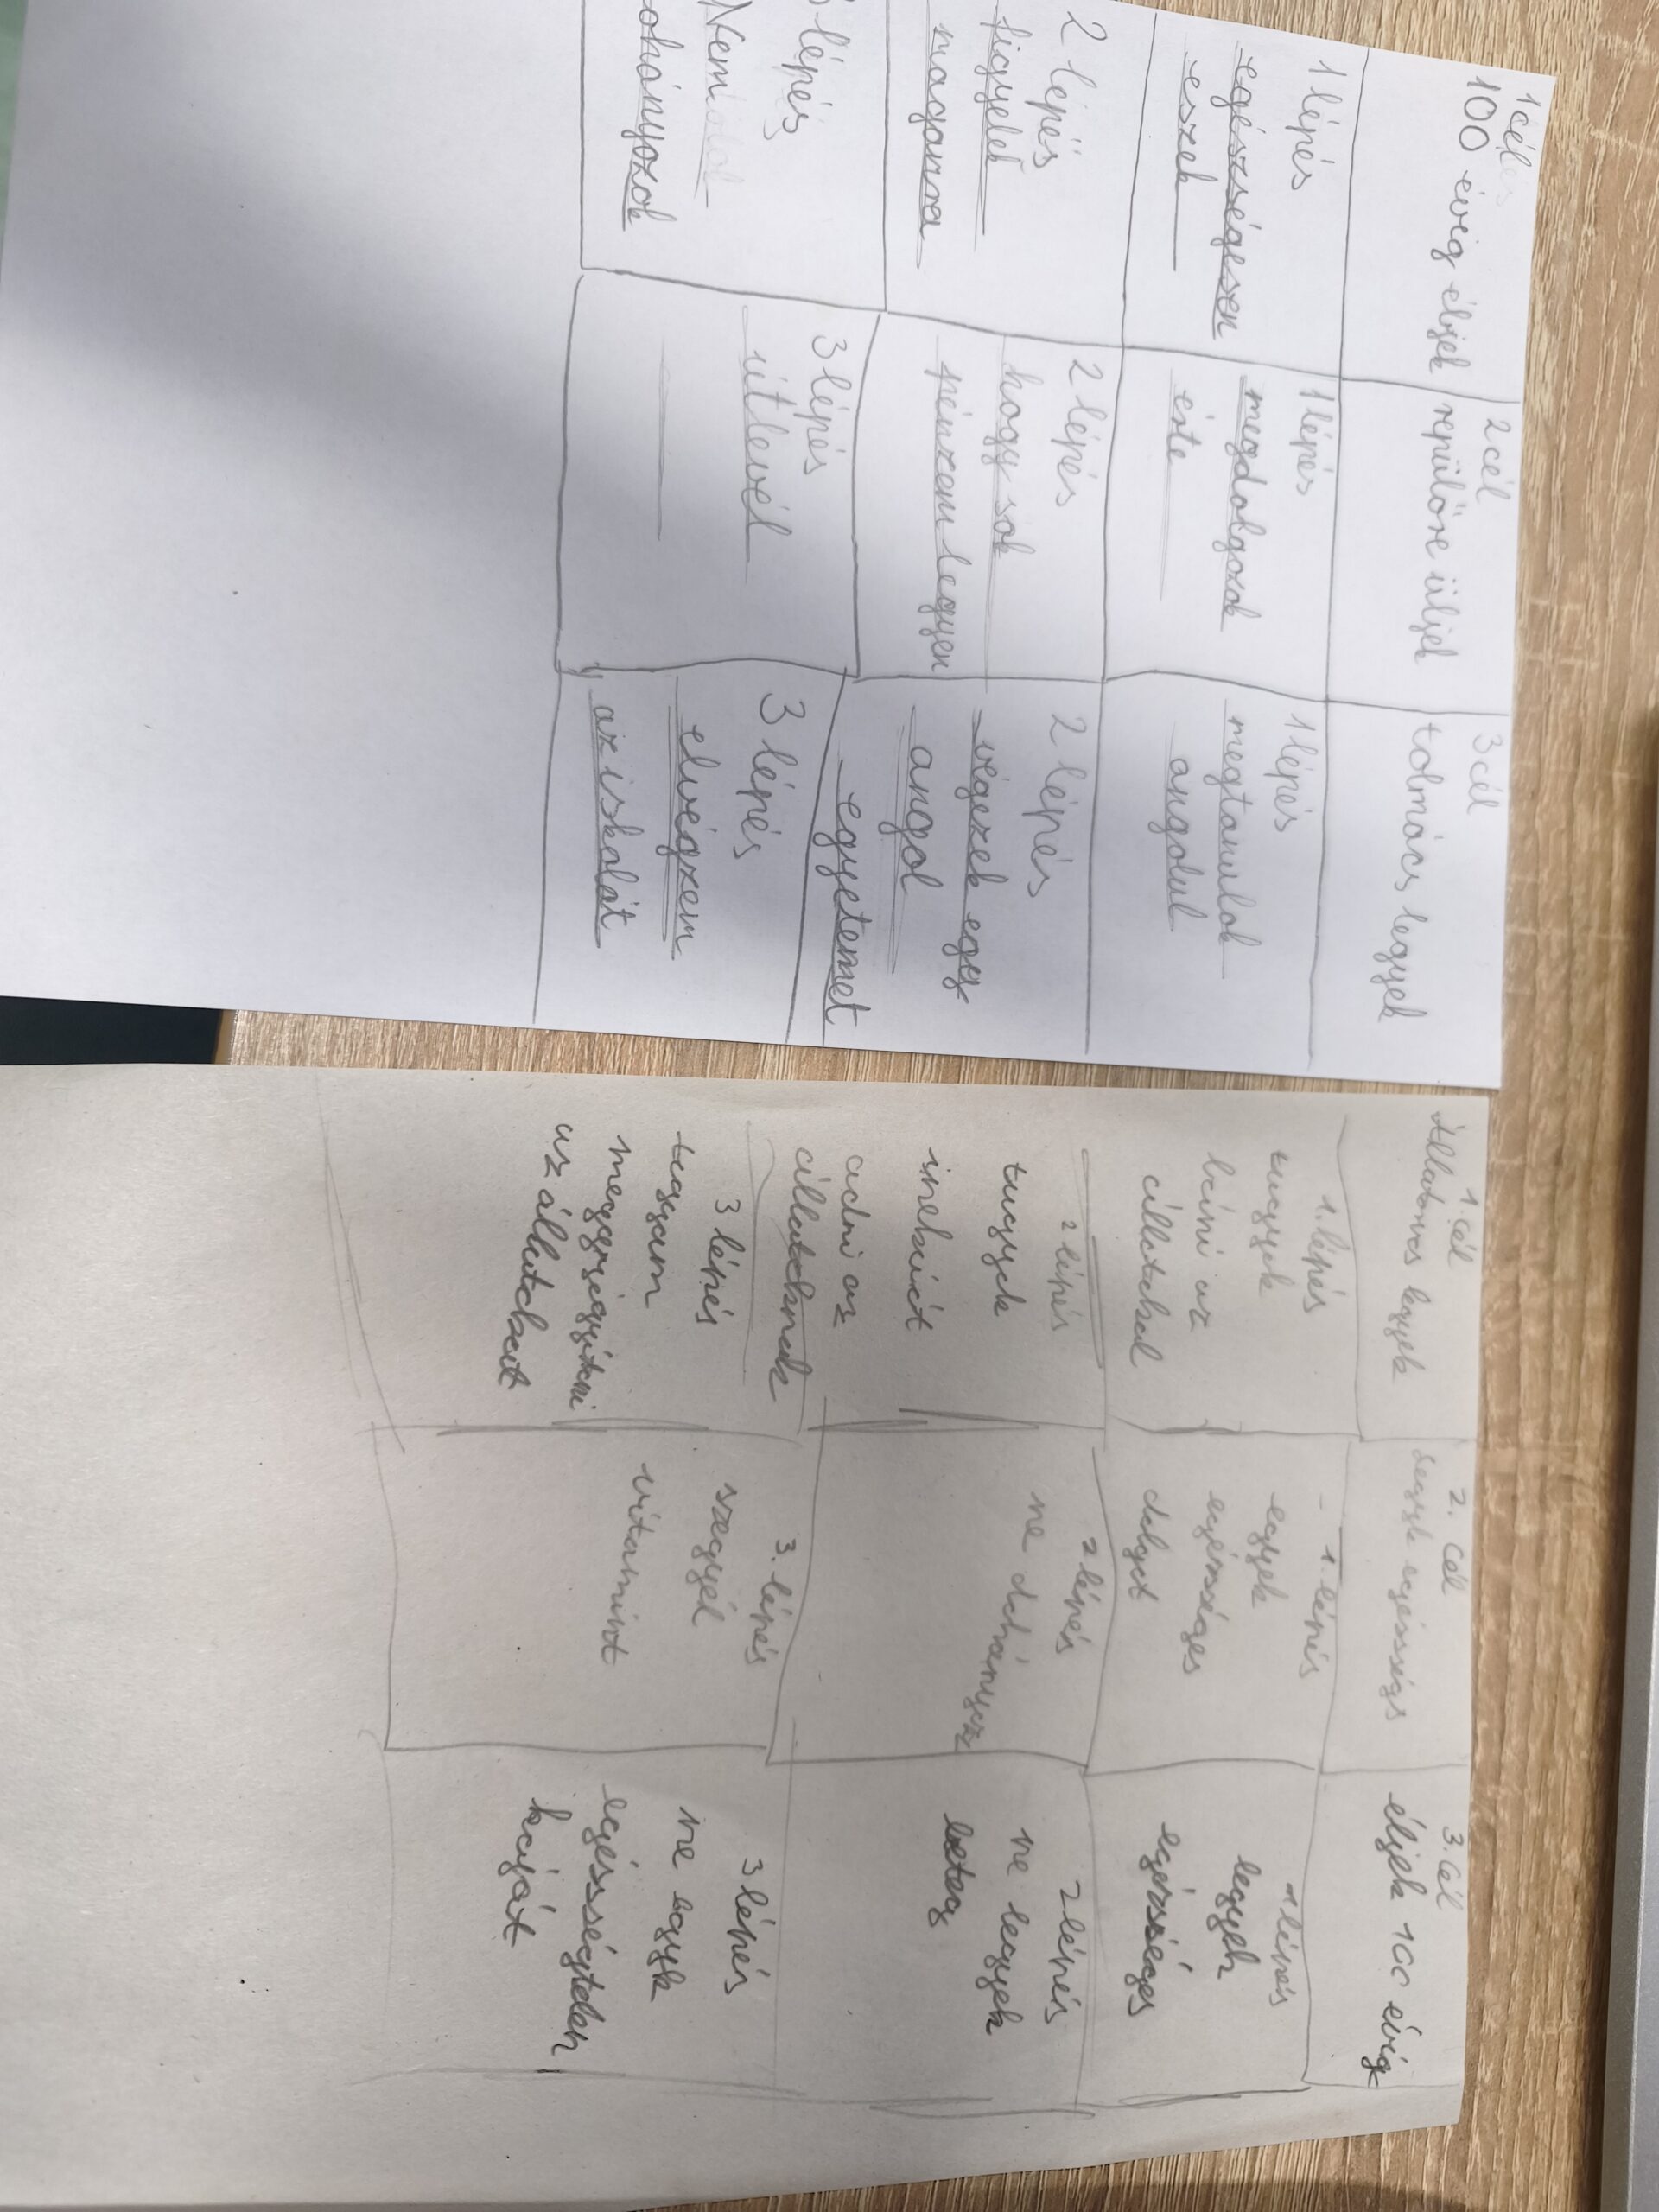 1 cél
100 évig éljek
1 lépés
egészségesen
eszek
2 lépés
figyelek
magamra
lépés
Nem
ohányozok
2 cél
repülőre üljek
1 lépés
megdolgozok
érte
2 lépés
hogy sok
pénzem legyen
3 lépés
útlevél
3 cél
tolmács legyek
1 lépés
megtanulok
angolul
2 lépés
végezek egy
angol
egyetemet
3 lépés
elvégzem
az iskolát
1. cél
Állatorvos legyek
1. lépés
tugyek
bánni az
állatokal
2 lépés
tugyek
inekciót
adni az
állatoknak
3 lépés
tuggyam
meggyógyítani
az állatokat
2. cél
Legyek egésséges
1. lépés
egyek
egészséges
dolgot
2 lépés
ne dohányozz
3. lépés
szegyél
vitamint
3. cél
éljek 100 évig
1 lépés
legyek
egészséges
2 lépés
ne legyek
beteg
3 lépés
ne egyek
egésségtelen
kaját